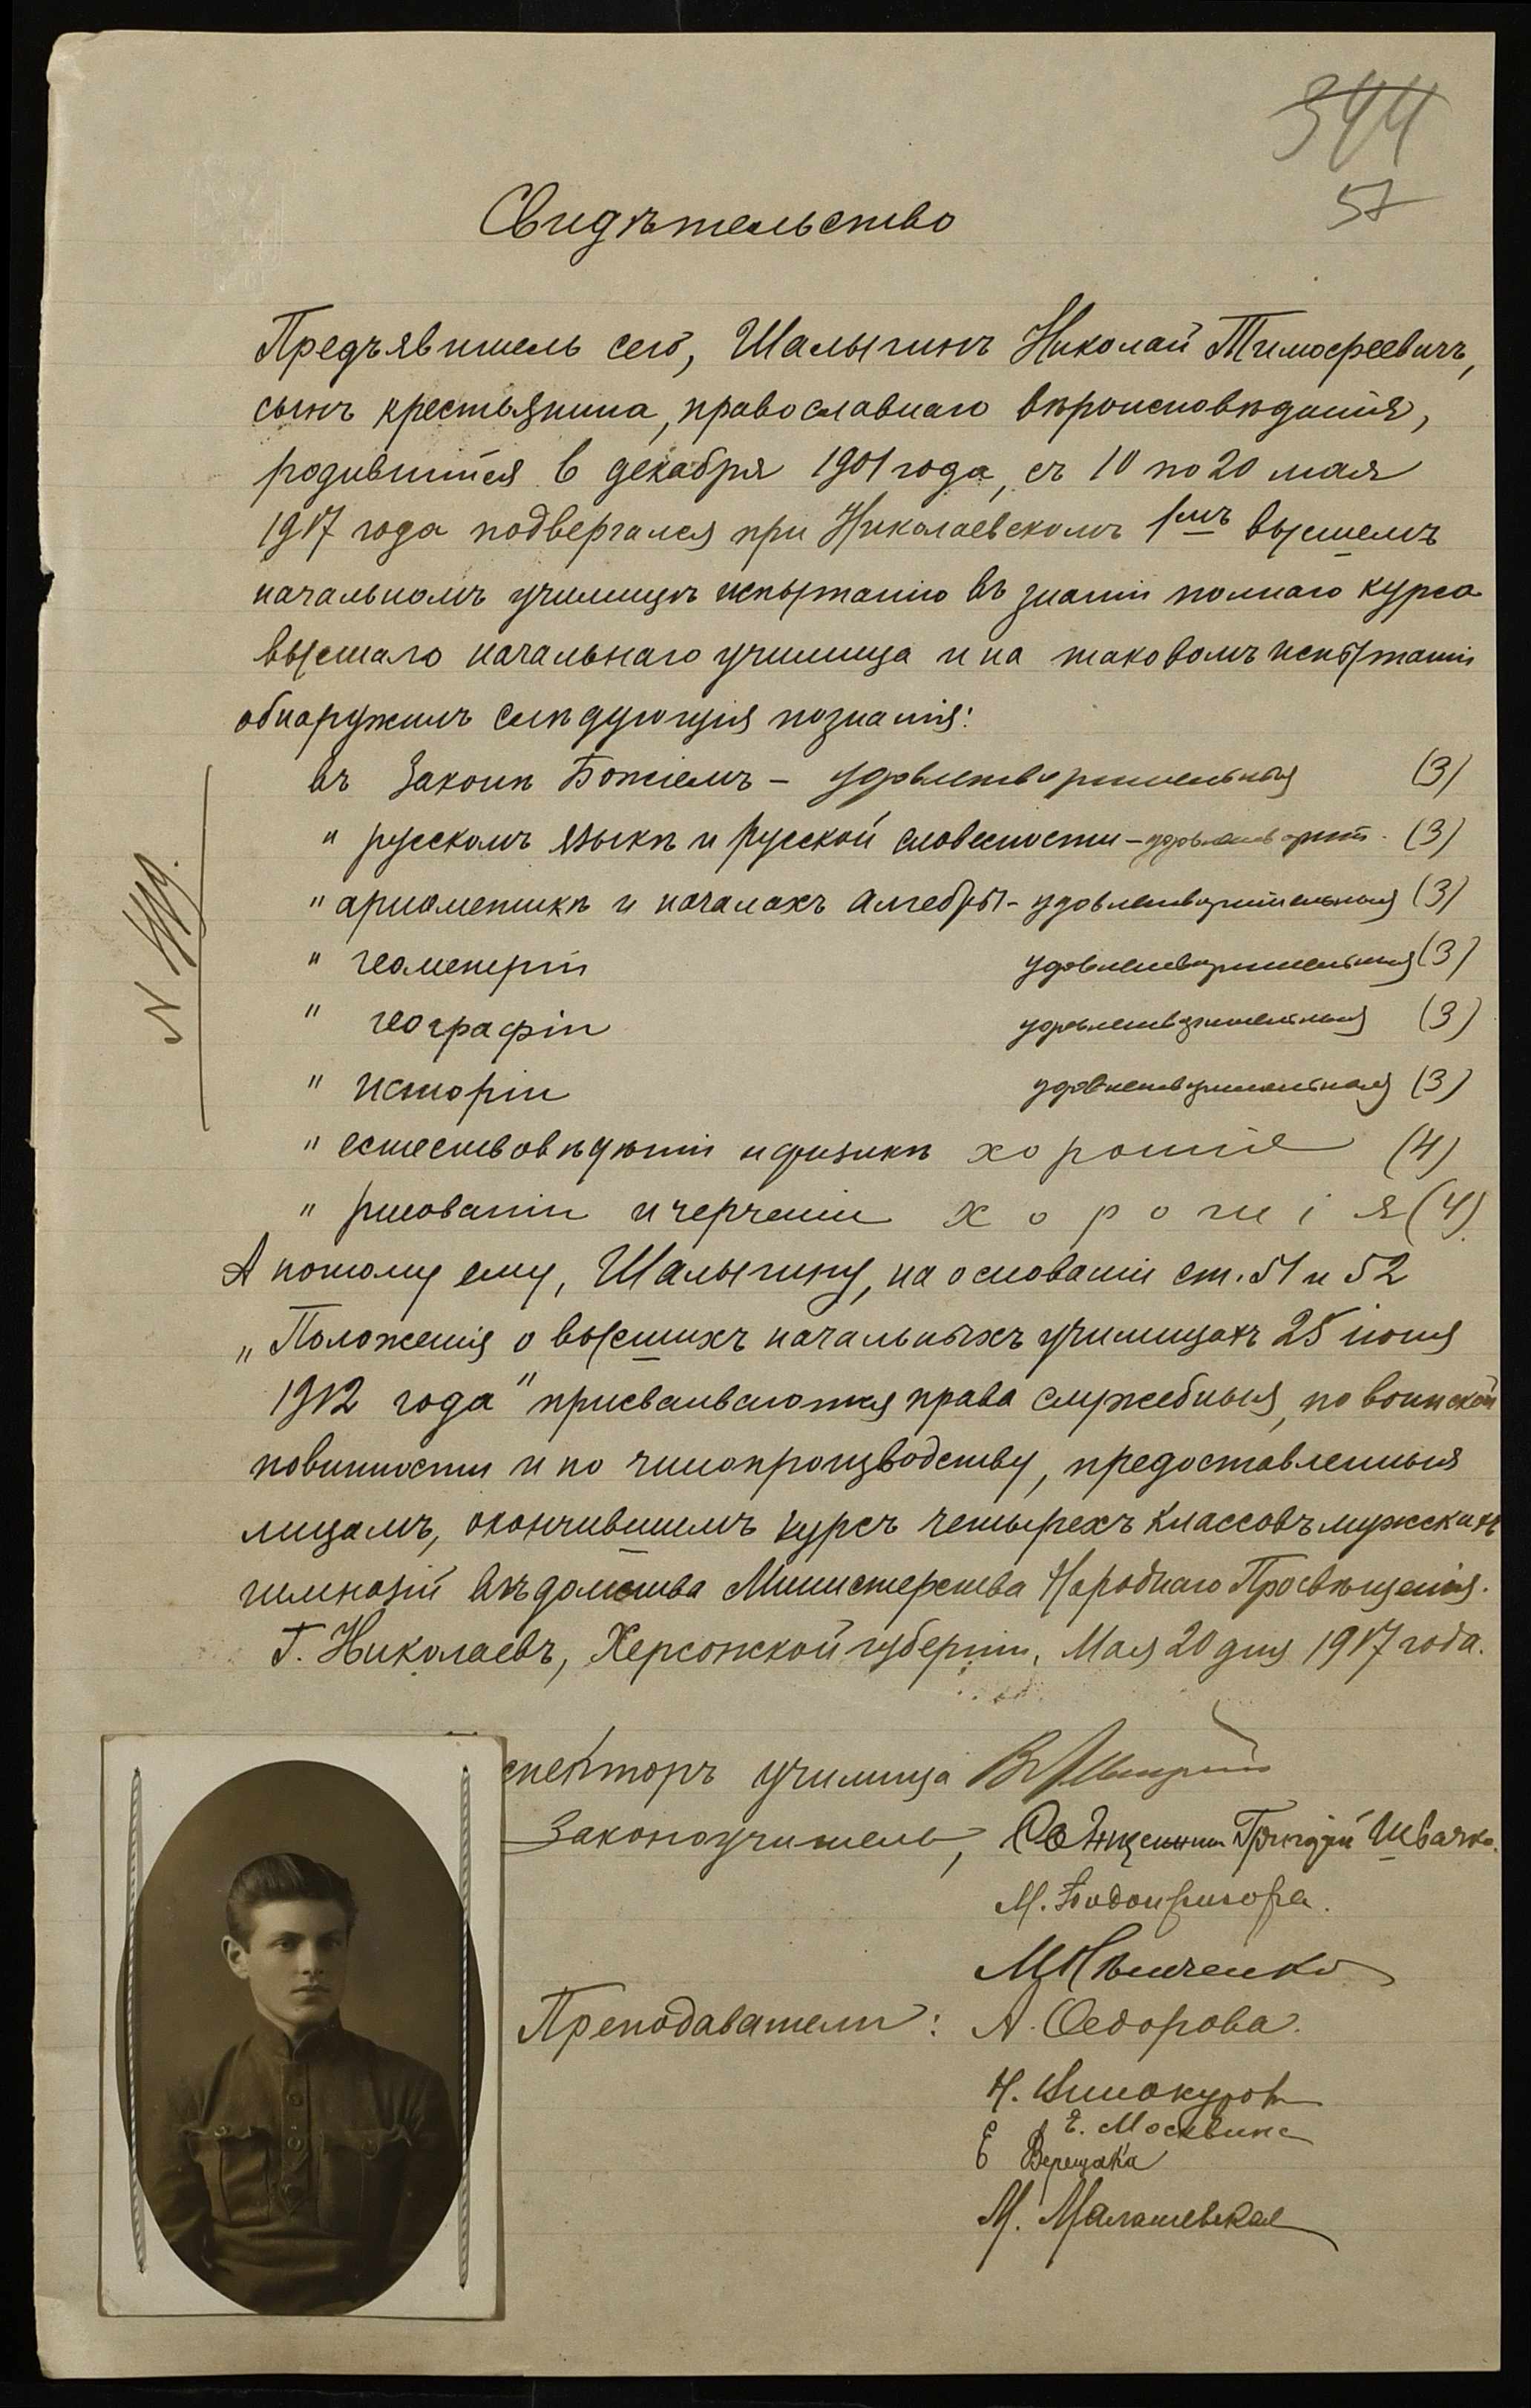 344
57
Свидѣтельство
Предъявитель сего, Шалыгинъ Николай Тимофеевичъ,
сынъ крестьянина, православнаго вѣроисповѣданія,
родившійся 6 декабря 1901 года, съ 10 по 20 мая
1917 года подвергался при Николаевскомъ 1мъ высшемъ
начальномъ училищѣ испытанію въ знаніи полнаго курса
высшаго начальнаго училища и на таковомъ испытаніи
обнаружилъ слѣдующія познанія:
въ Законѣ Божіемъ - удовлетворительныя (3)
" русскомъ языкѣ и русской словесности - удовлетворит. (3)
" ариѳметикѣ и началахъ алгебры - удовлетворительныя (3)
" геометріи удовлетворительныя (3)
" географіи удовлетворительныя (3)
" исторіи удовлетворительныя (3)
" естествовѣдѣніи и физикѣ хорошія (4)
" рисованіи и черченіи хорошія (4)
N
А потому ему, Шалыгину, на основаніи ст. 51 и 52
„Положенія о высшихъ начальныхъ училищахъ 25 іюня
1912 года" присваиваются права служебныя, по воинской
повинности и по чинопроизводству, предоставленныя
лицамъ, окончившимъ курсъ четырехъ классовъ мужскихъ
гимназій вѣдомства Министерства Народнаго Просвѣщенія.
Г. Николаевъ, Херсонской губерніи, Мая 20 дня 1917 года.
спекторъ училища
Законоучитель, Священникъ Григорій Швачко.
М. Подопригора.
Преподаватели: А. Ѳедорова.
Н. Винокуров
Е. Москвина
Е Верещака
М. Малашевская